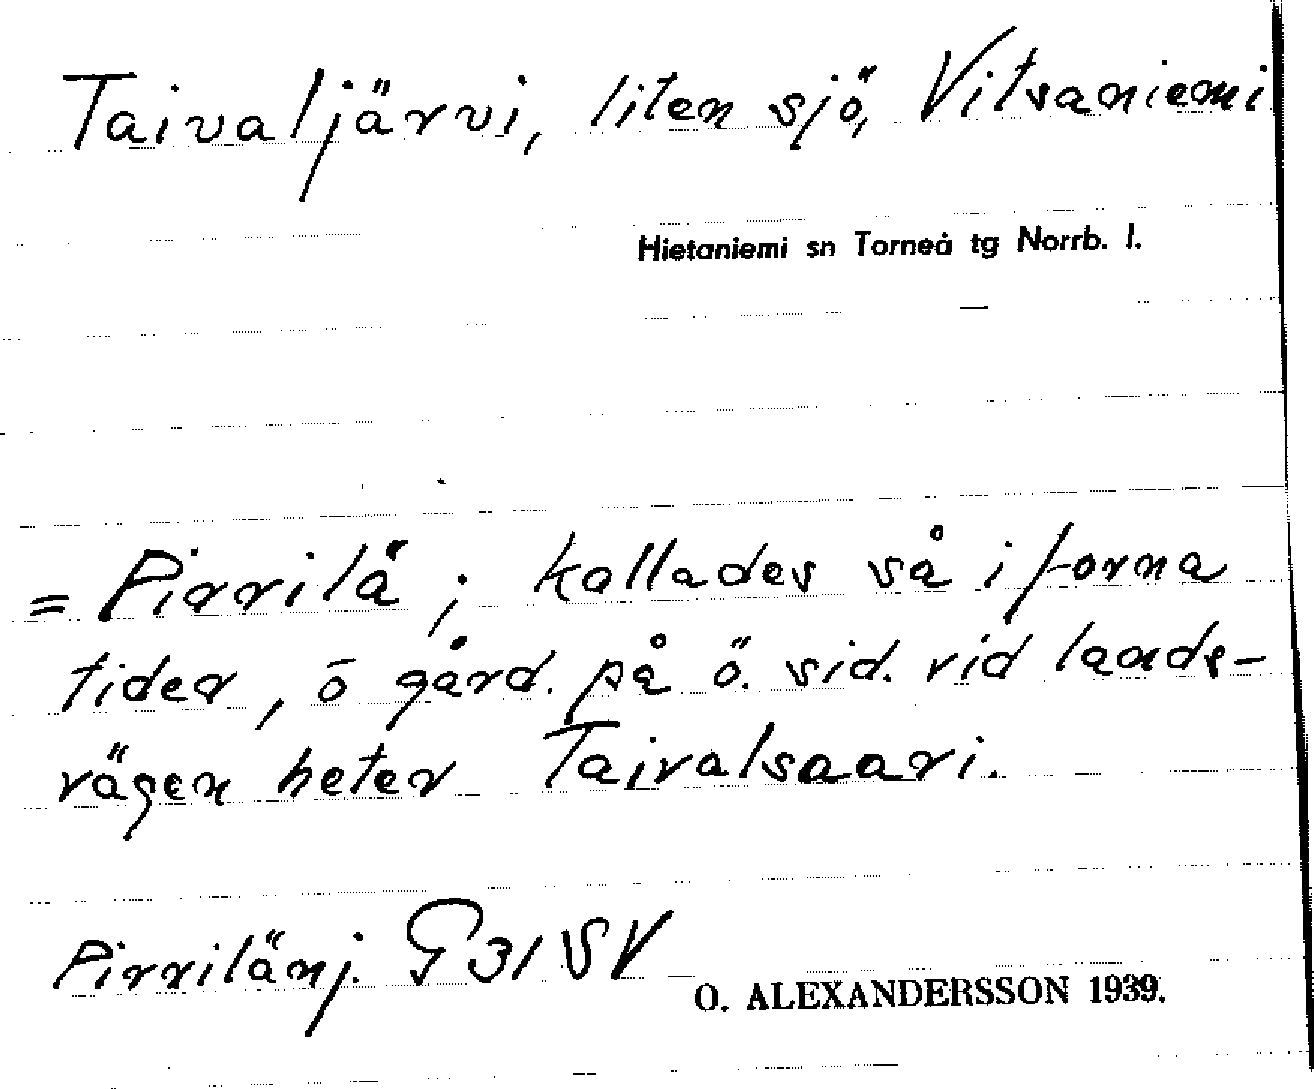 Taivaljärvi, liten sjö, Vitsaniemi
Hietaniemi sn Torneå tg Norrb. l.
= Pirrilä; kallades så i forna
tider, ō gård. på ö. sid. vid lands-
vägen heter Taivalsaari.
Pirrilänj. G 31 SV
O. ALEXANDERSSON 1939.